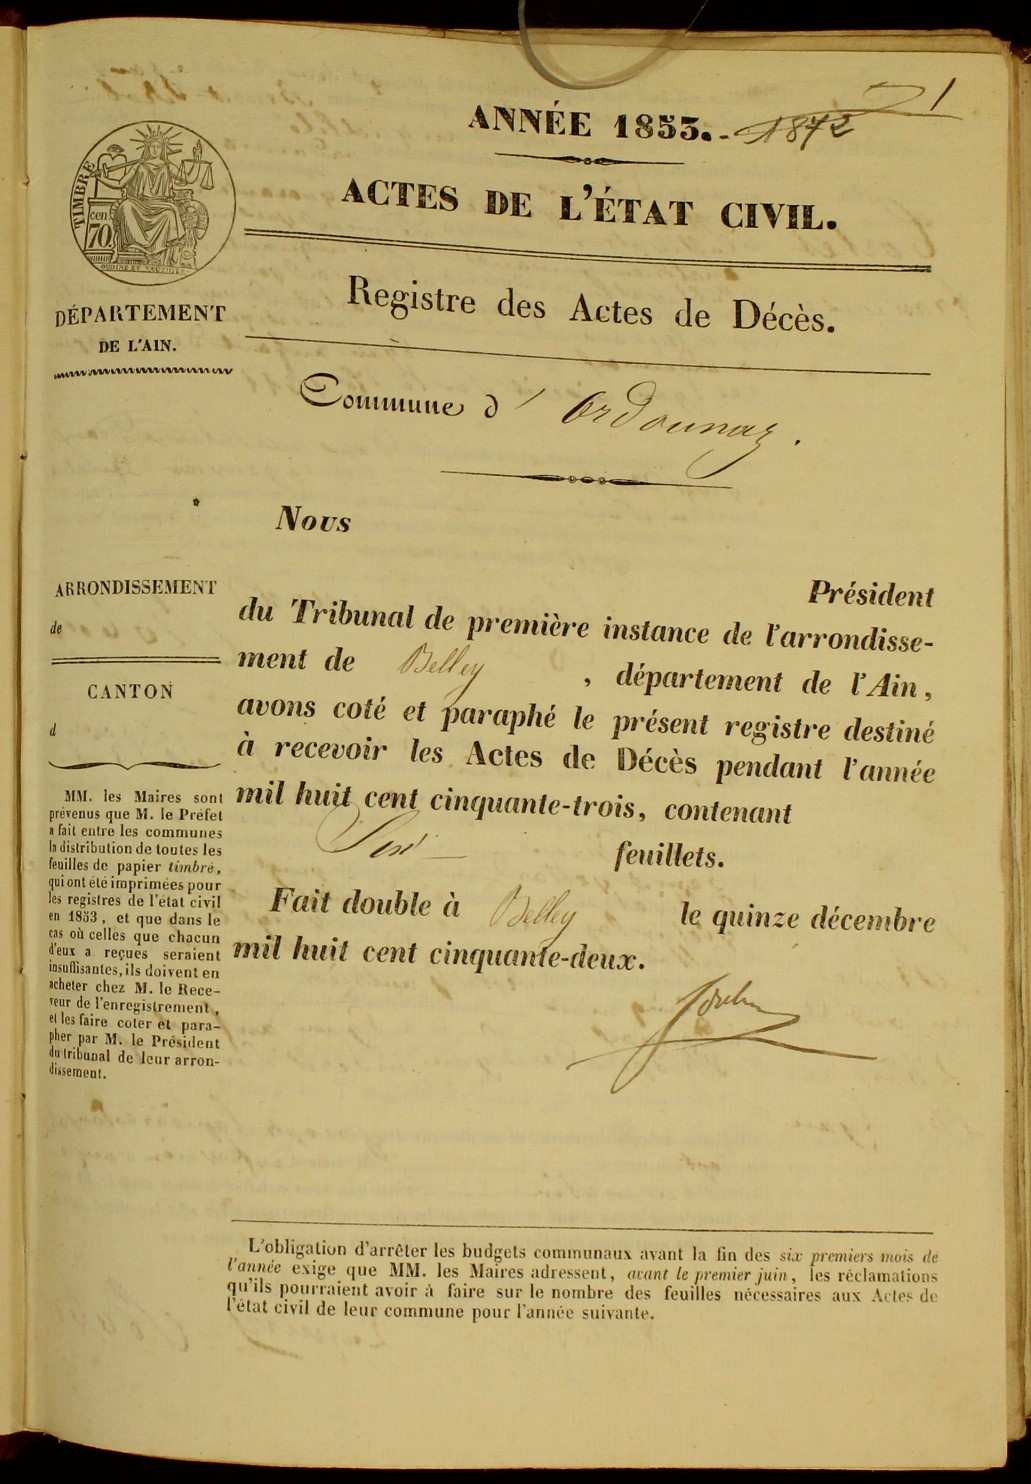 1
ANNÉE 1853. - 1872
ACTES DE L'ÉTAT CIVIL.
TIMBRE
cen
70
DÉPARTEMENT
DE L'AIN.
Registre des Actes de Décès.
Commune d'Ordonnaz.
Nous
Président
du Tribunal de première instance de l'arrondisse-
ment de Belley, département de l'Ain,
avons coté et paraphé le présent registre destiné
à recevoir les Actes de Décès pendant l'année
mil huit cent cinquante-trois, contenant
Six feuillets.
Fait double à Belley le quinze décembre
mil huit cent cinquante-deux.
ARRONDISSEMENT
de
CANTON
d
MM. les Maires sont
prévenus que M. le Préfet
a fait entre les communes
la distribution de toutes les
feuilles de papier timbré,
qui ont été imprimées pour
les registres de l'état civil
en 1853, et que dans le
cas où celles que chacun
d'eux a reçues seraient
insuffisantes, ils doivent en
acheter chez M. le Rece-
veur de l'enregistrement,
et les faire coter et para-
pher par M. le Président
du tribunal de leur arron-
dissement.
L'obligation d'arrêter les budgets communaux avant la fin des six premiers mois de
l'année exige que MM. les Maires adressent, avant le premier juin, les réclamations
qu'ils pourraient avoir à faire sur le nombre des feuilles nécessaires aux Actes de
l'état civil de leur commune pour l'année suivante.